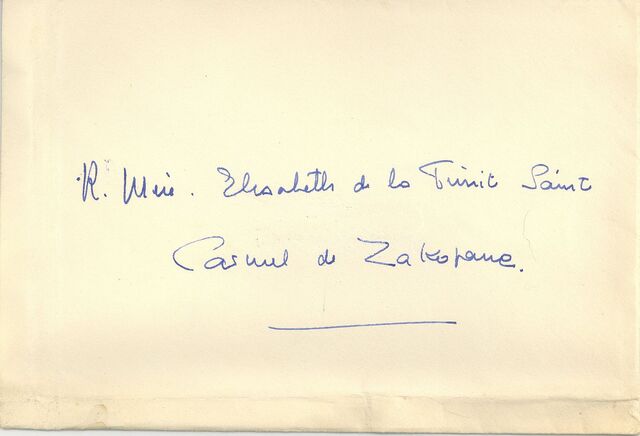 R. Mère. Elisabeth de la Trinit Saint
Carmel de Zakopane.